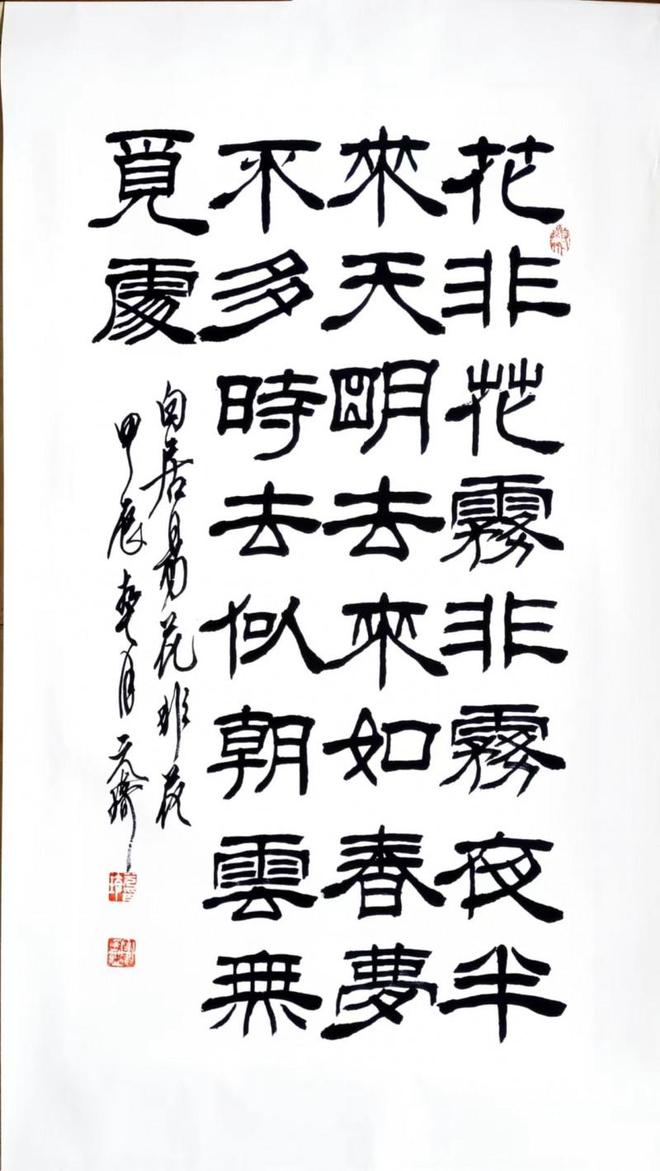 花非花霧非霧夜半
來天明去來如春夢
不多時去似朝雲無
覓處
白居易花非花
甲辰 月天齋